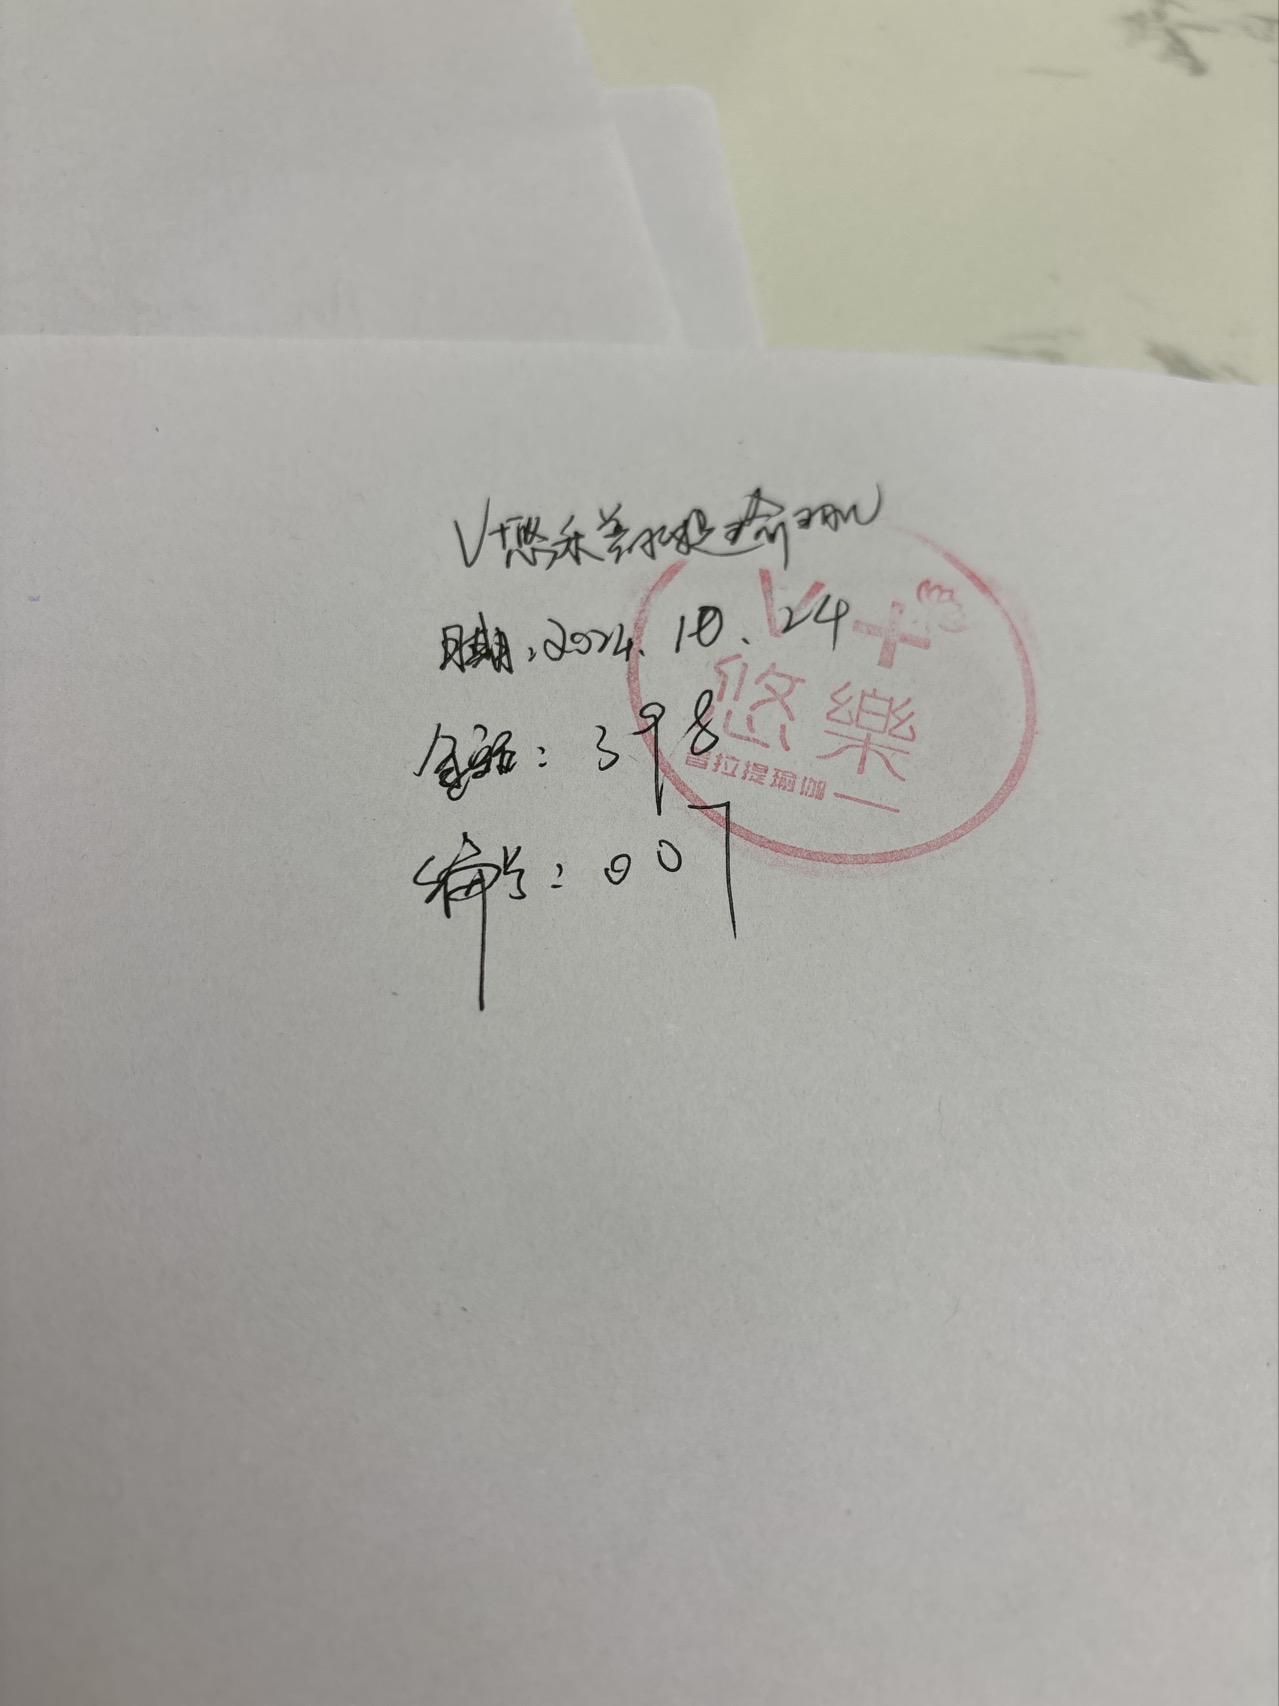 V+悠乐普拉提瑜珈
日期:2024.10.24
金额:398
编号:007
V+
悠樂
普拉提瑜伽